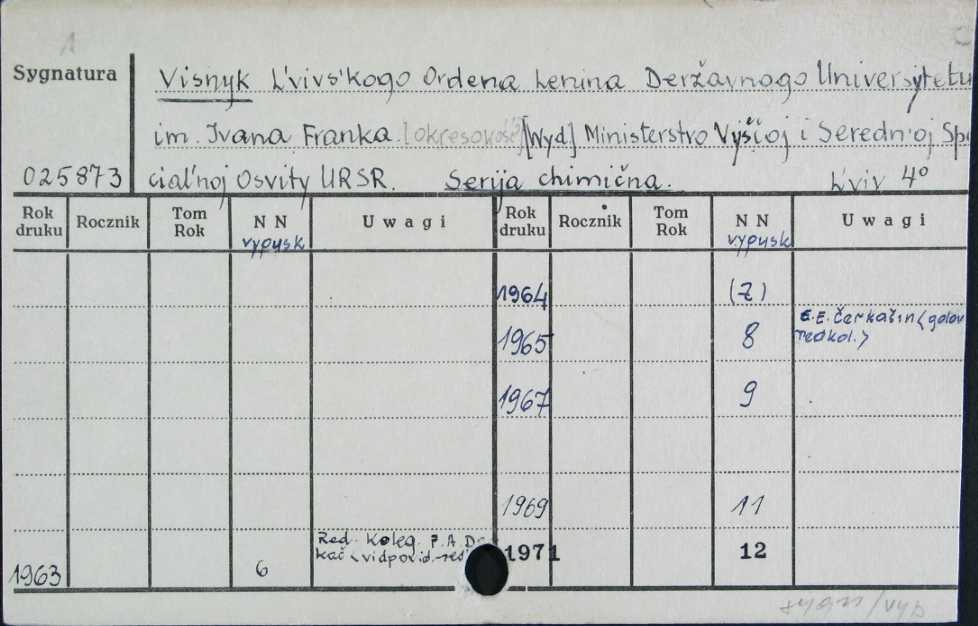 1
Sygnatura
Visnyk L'vivs'kogo Ordena Lenina Deržavnogo Universytetu
im. Ivana Franka [okresovość] [Wyd] Ministerstvo Vyščoj i Seredn'oj Spe
025873 cial'noj Osvity URSR. Serija chimična. L'viv 4°
Rok druku Rocznik Tom Rok N N vypusk Uwagi Rok druku Rocznik Tom Rok N N vypusk Uwagi
1964 (7)
1965 8 E.E. Čerkašin (golov redkol.)
1967 9
1969 11
Red. Koleg.
1971 12
1963 6